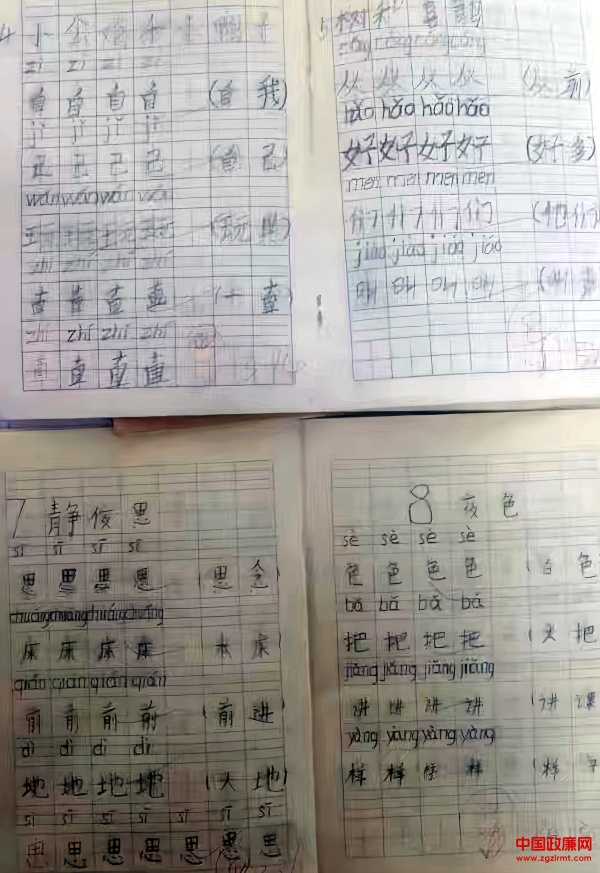 4 小 公 鸡 和 小 鸭 子
zì zì zì zì
自 自 自 自 (自 我)
jǐ jǐ jǐ jǐ
己 己 己 己 (自 己)
wán wán wán wán
玩 玩 玩 玩 (玩 具)
zhí zhí zhí zhí
直 直 直 直 (一 直)
zhí zhí zhí zhí
直 直 直 直
5 树 和 喜 鹊
cóng cóng cóng cóng
从 从 从 从 (从 前)
hǎo hǎo hǎo hǎo
好 好 好 好 (好 多)
men men men men
们 们 们 们 (他 们)
jiào jiào jiào jiào
叫 叫 叫 叫
7 静 夜 思
sī sī sī sī
思 思 思 思 (思 念)
chuáng chuáng chuáng chuáng
床 床 床 床 (木 床)
qián qián qián qián
前 前 前 前 (前 进)
dì dì dì dì
地 地 地 地 (大 地)
sī sī sī sī sī sī sī
思 思 思 思 思 思 思
8 夜 色
sè sè sè sè
色 色 色 色 (白 色
bǎ bǎ bǎ bǎ
把 把 把 把 (火 把
jiǎng jiǎng jiǎng jiǎng
讲 讲 讲 讲 (讲 课
yàng yàng yàng yàng
样 样 样 样 (样 子
中国政廉网
www.zgzlrmt.com